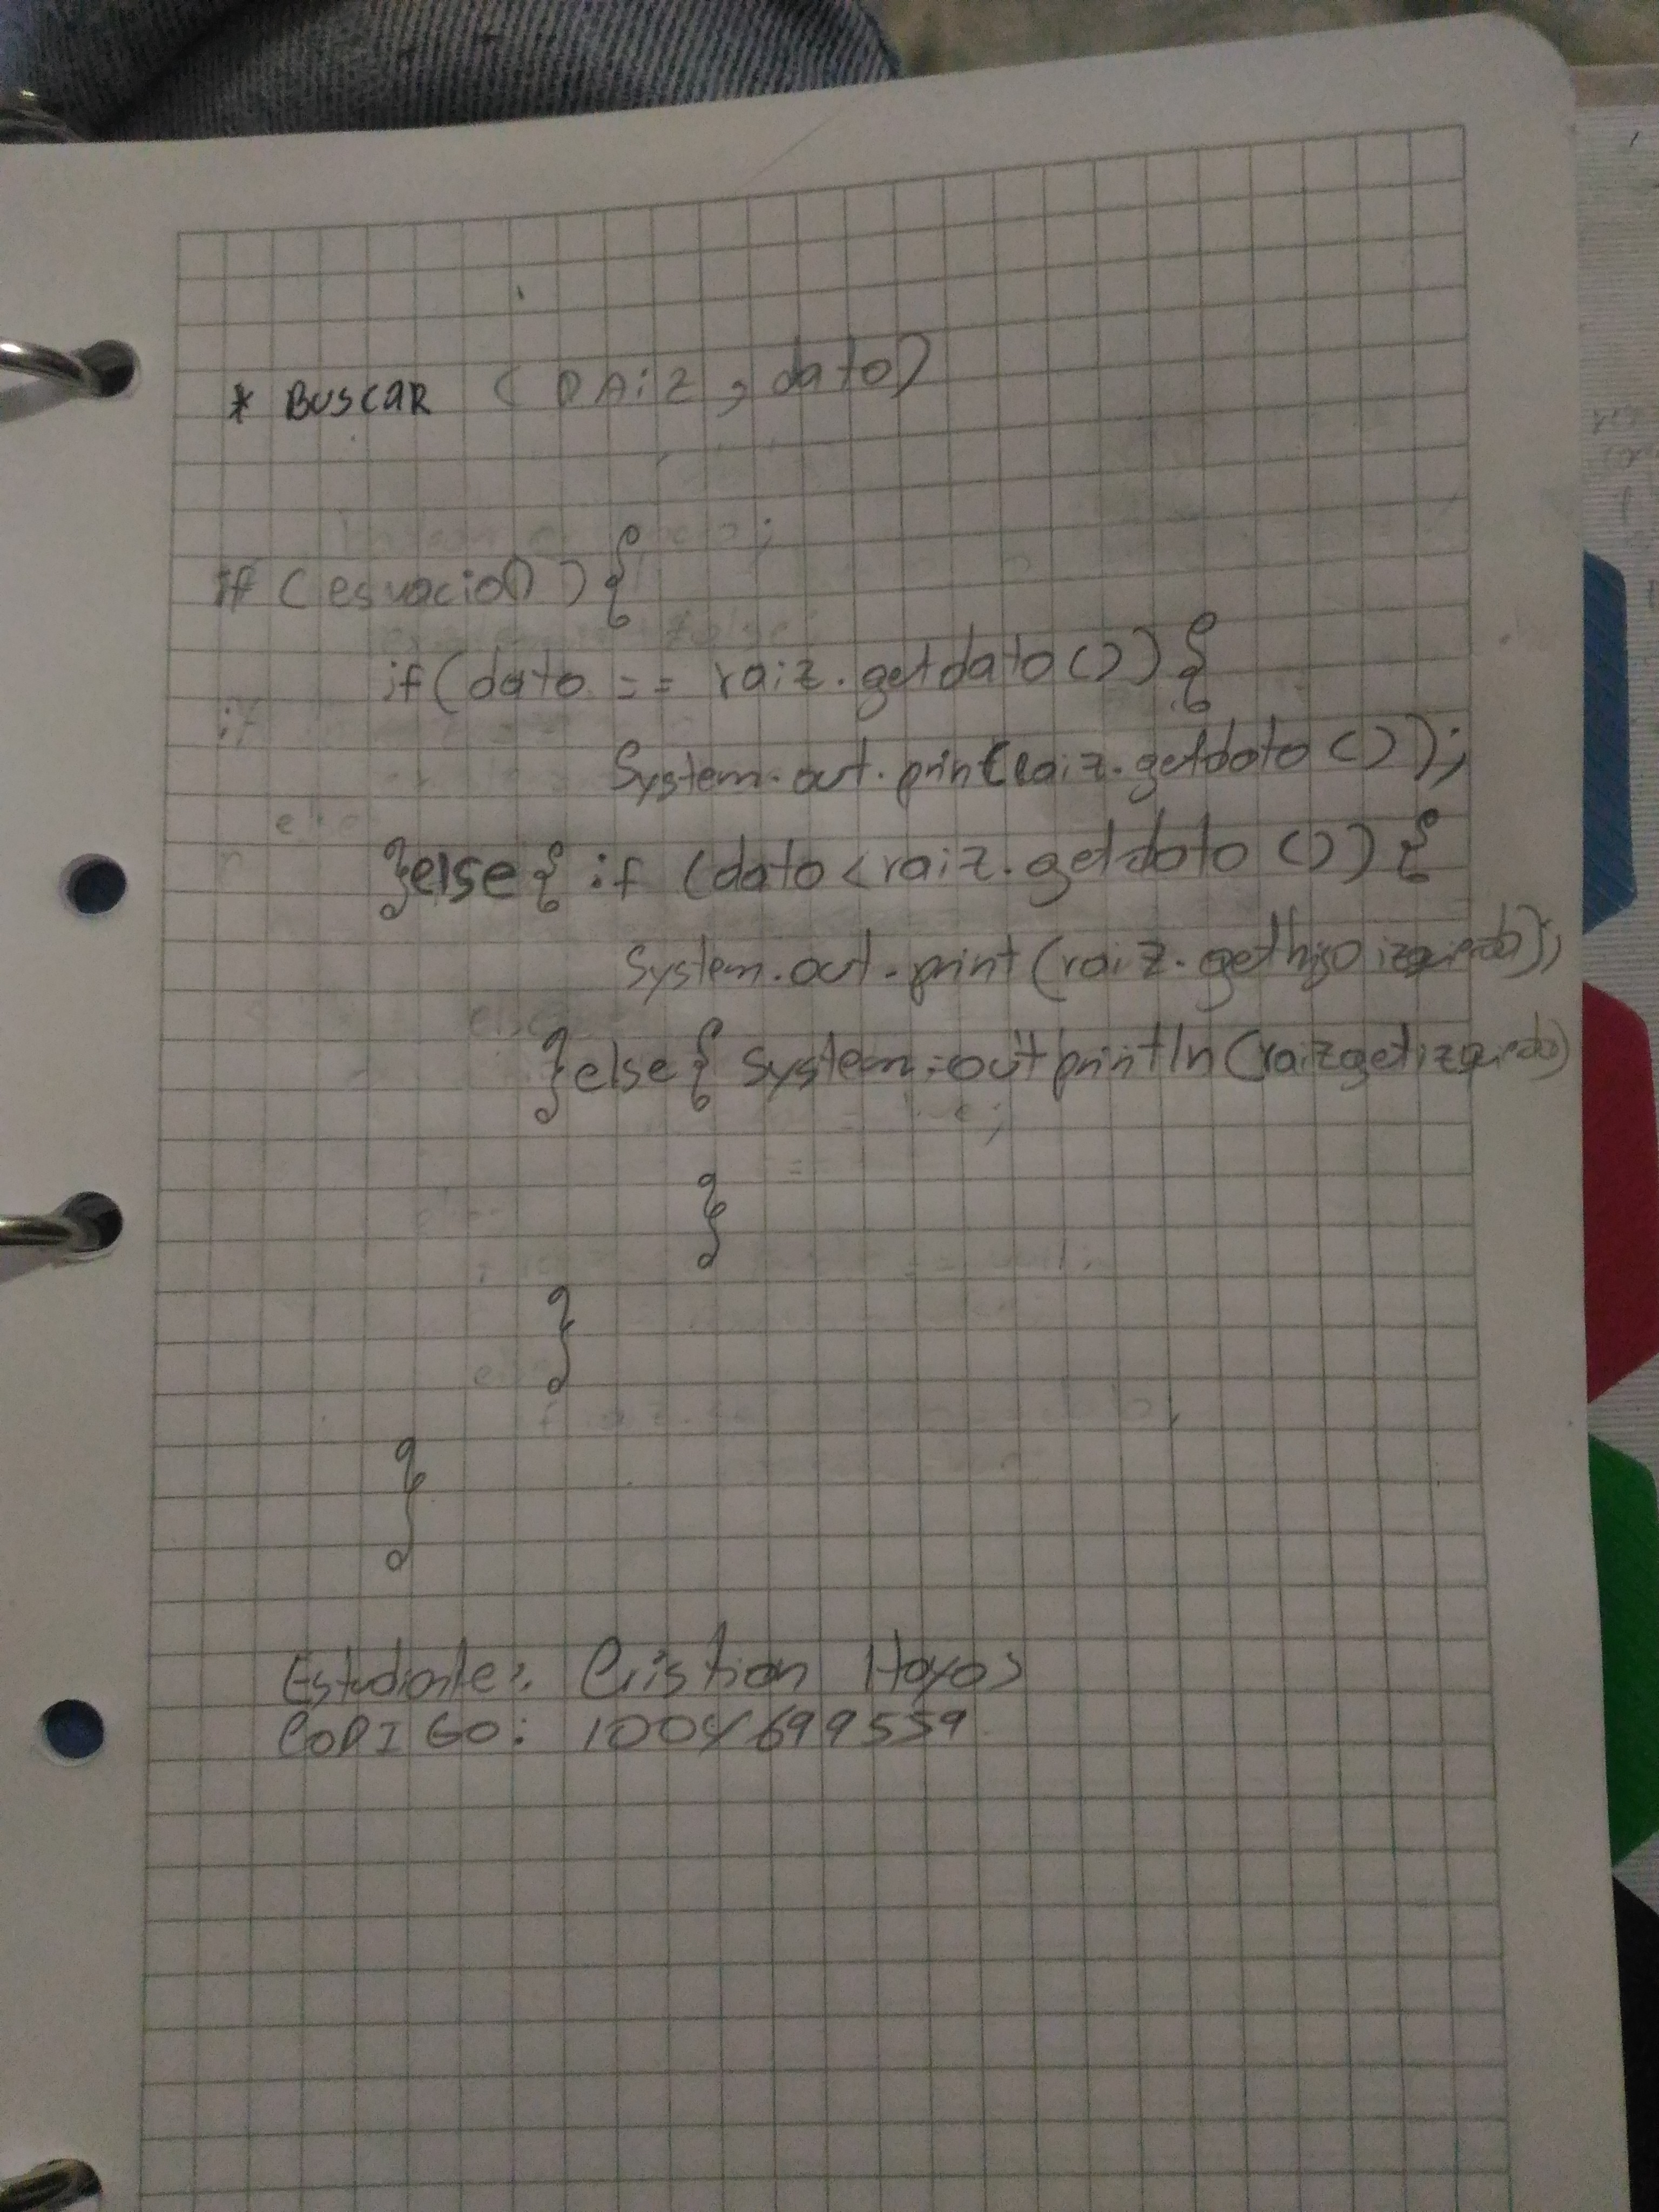 * BUSCAR (RAiz, dato)
if (esvacio()) {
if (dato == raiz.getdato()) {
System.out.print(raiz.getdato());
}else{ if (dato < raiz.getdato()) {
System.out.print(raiz.gethijo izquierdo);
}else{ System.out println(raizgetizquierdo)
}
}
}
Estudiante: Cristian Hoyos
CODIGO: 1004699559